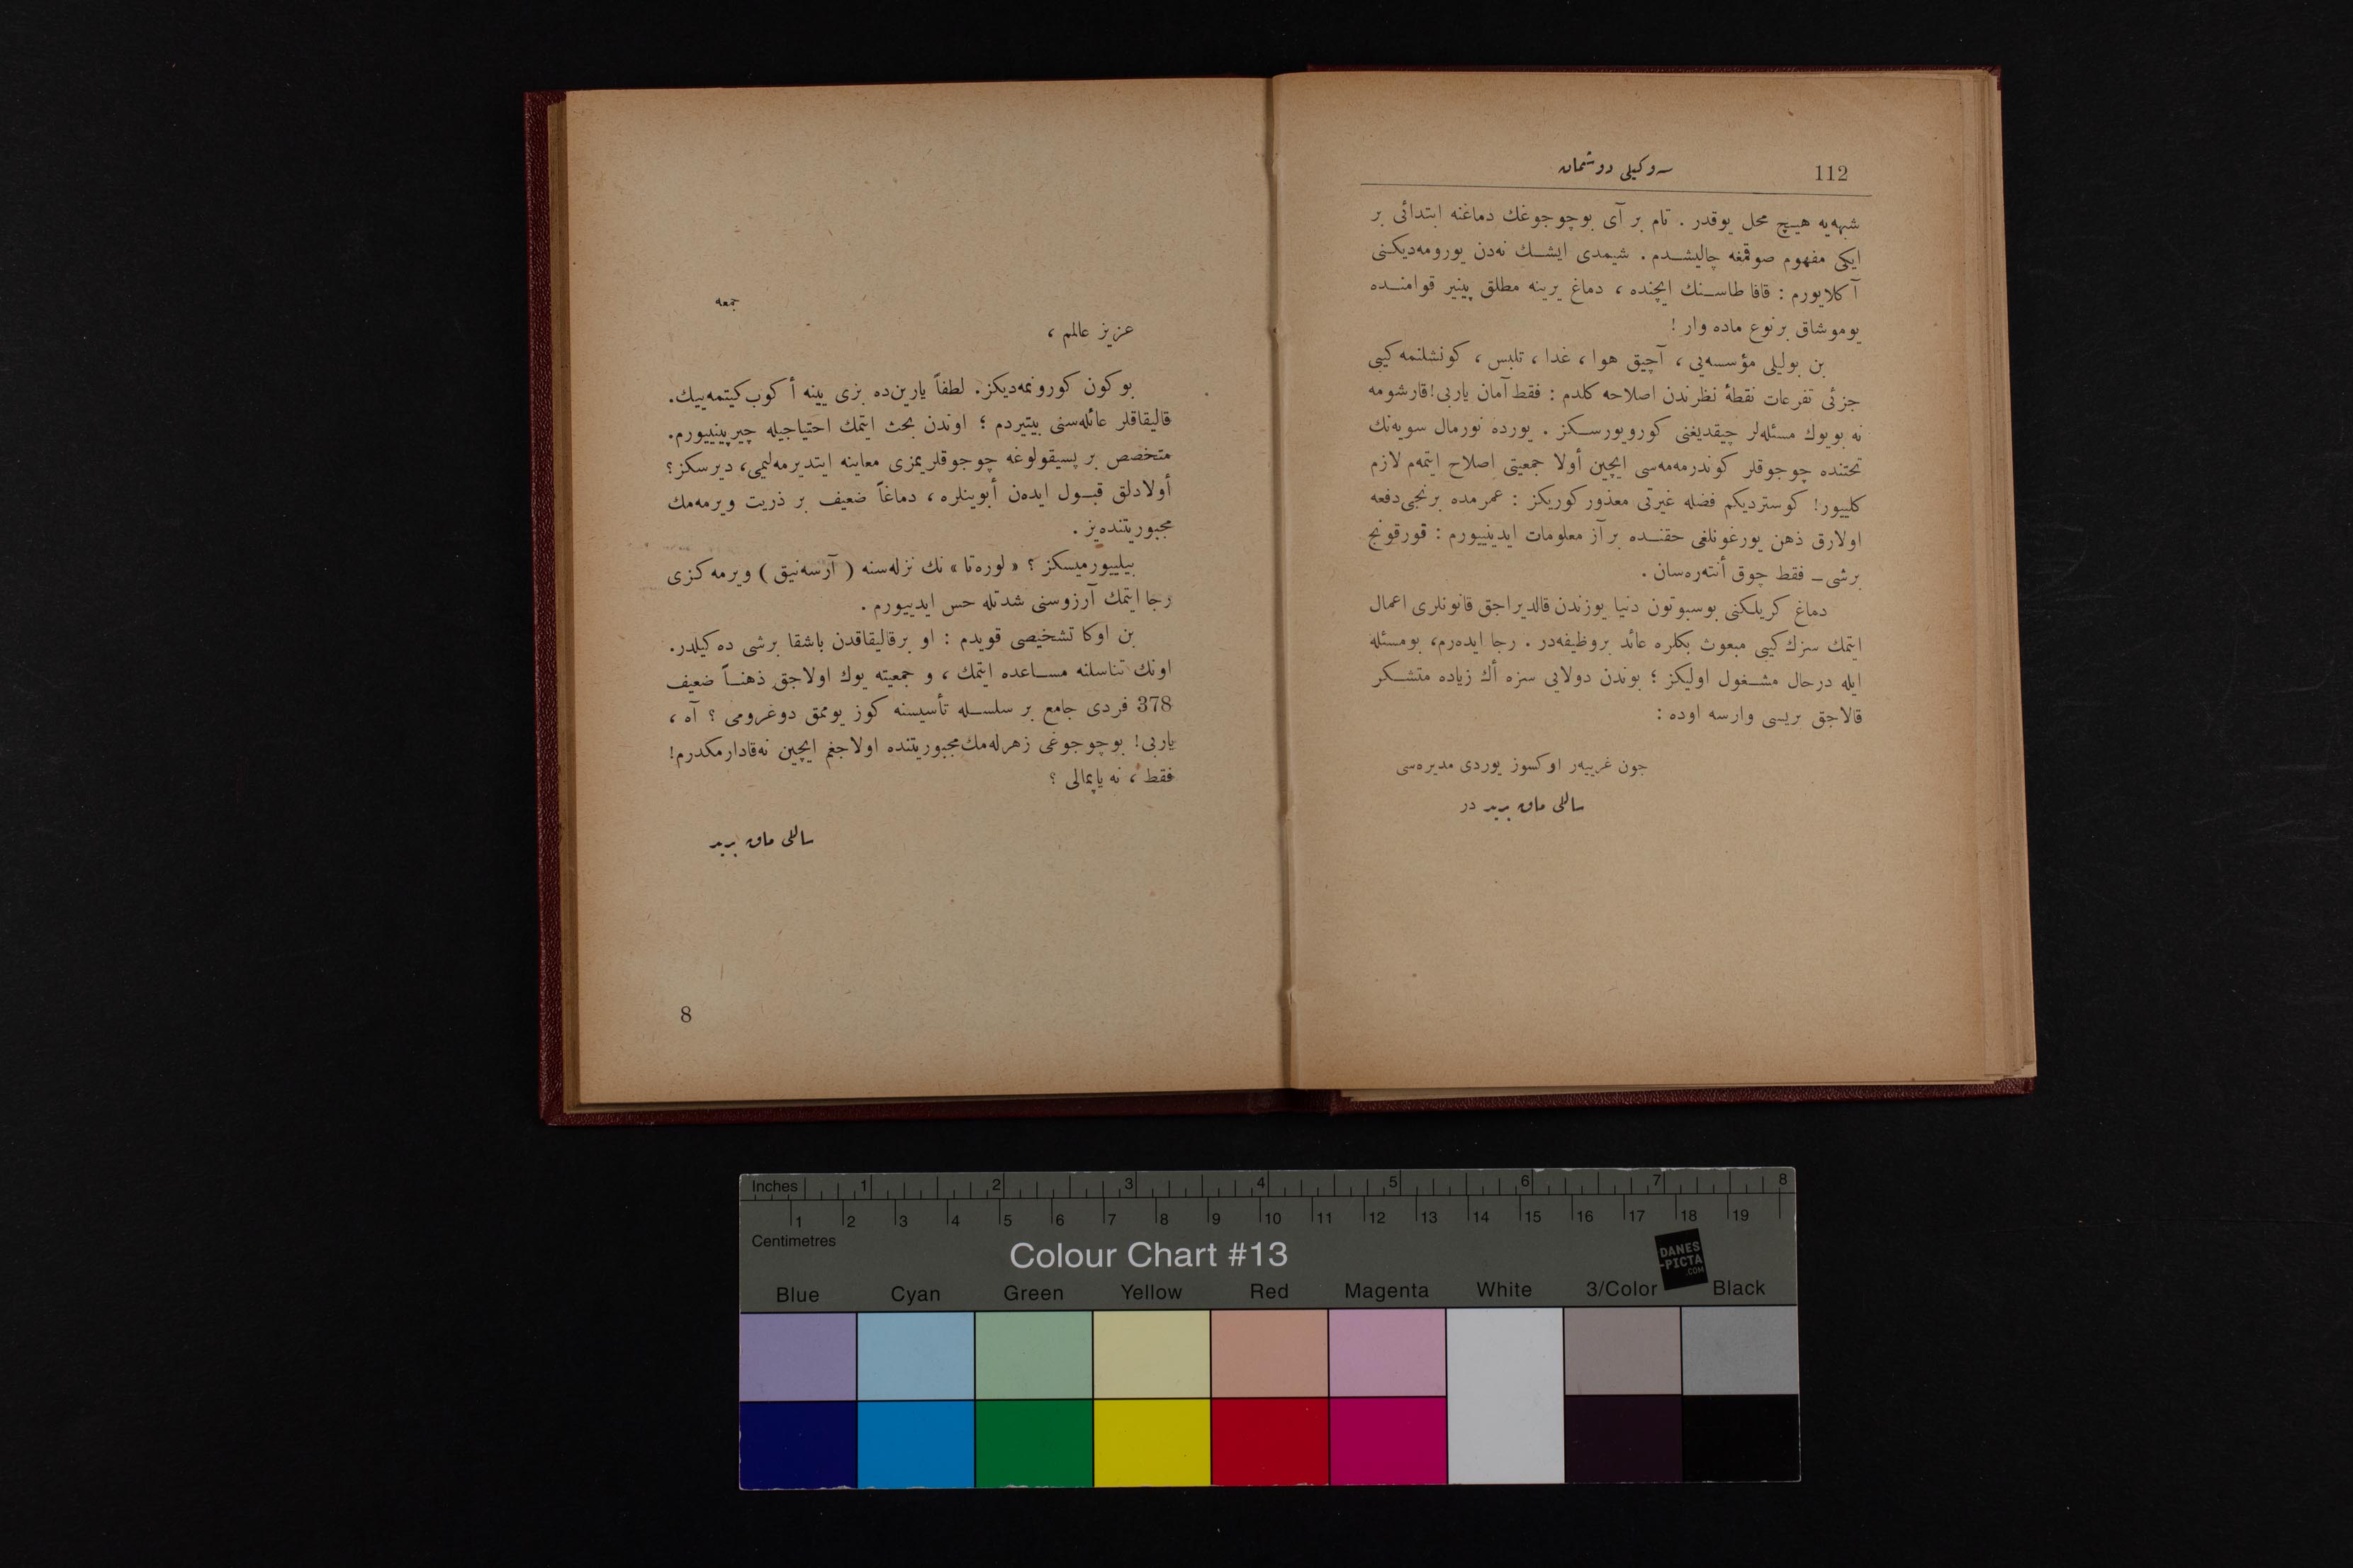 112
سوكيلی دوشمان
شبهه‌يه هيچ محل يوقدر . تام بر آی بوچوجوغك دماغنه ابتدائی بر
ايكی مفهوم صوقمغه چاليشدم . شيمدی ايشك نه‌دن يورومه‌ديكنی
آكلايورم : قافا طاسنك ايچنده ، دماغ يرينه مطلق پينير قوامنده
يوموشاق برنوع ماده وار !
بن بوليلی مؤسسه‌يی ، آچيق هوا ، غدا ، تلبس ، كونشلنمه كيبی
جزئی تفرعات نقطهٔ نظرندن اصلاحه كلدم : فقط آمان ياربی! قارشومه
نه بويوك مسئله‌لر چيقديغنی كورويورسكز . يورده نورمال سويه‌نك
تحتنده چوجوقلر كوندرمه‌مه‌سی ايچين أولا جمعيتی اصلاح ايتمه‌م لازم
كلييور! كوسترديكم فضله غيرتی معذور كوريكز : عمرمده برنجی دفعه
اولارق ذهن يورغونلغی حقنده بر آز معلومات ايدينييورم : قورقونج
برشی ـ فقط چوق أنته‌ره‌سان .
دماغ كريلكنی بوسبوتون دنيا يوزندن قالديراجق قانونلری اعمال
ايتمك سزك كيبی مبعوث بكلره عائد بروظيفه‌در . رجا ايده‌رم، بومسئله
ايله درحال مشغول اوليكز ؛ بوندن دولايی سزه أك زياده متشكر
قالاجق بريسی وارسه اوده :
جون غرييه‌ر اوكسوز يوردی مديره‌سی
ساللی ماق بريد در
جمعه
عزيز عالمم ،
بوكون كورونمه‌ديكز. لطفاً يارين‌ده بزی يينه أكوب كيتمه‌ييك.
قاليقاقلر عائله‌سنی بيتيردم ؛ اوندن بحث ايتمك احتياجيله چيرپينييورم.
متخصص بر پسيقولوغه چوجوقلريمزی معاينه ايتديرمه‌ليمی، ديرسكز؟
أولادلق قبول ايده‌ن أبوينلره ، دماغاً ضعيف بر ذريت ويرمه‌مك
مجبوريتنده‌يز .
بيلييورميسكز ؟ « لوره‌تا » نك نزله‌سنه ( آرسه‌نيق ) ويرمه‌كزی
رجا ايتمك آرزوسنی شدتله حس ايدييورم .
بن اوكا تشخيصی قويدم : او برقاليقاقدن باشقا برشی ده‌كيلدر.
اونك تناسلنه مساعده ايتمك ، و جمعيته يوك اولاجق ذهناً ضعيف
378 فردی جامع بر سلسله تأسيسنه كوز يوممق دوغرومی ؟ آه ،
ياربی! بوچوجوغی زهرله‌مك مجبوريتنده اولاجغم ايچين نه‌قادار مكدرم!
فقط ، نه ياپمالی ؟
ساللی ماق بريد
8
Inches 1 2 3 4 5 6 7 8
1 2 3 4 5 6 7 8 9 10 11 12 13 14 15 16 17 18 19
Centimetres
Colour Chart #13
DANES
-PICTA
.COM
Blue Cyan Green Yellow Red Magenta White 3/Color Black